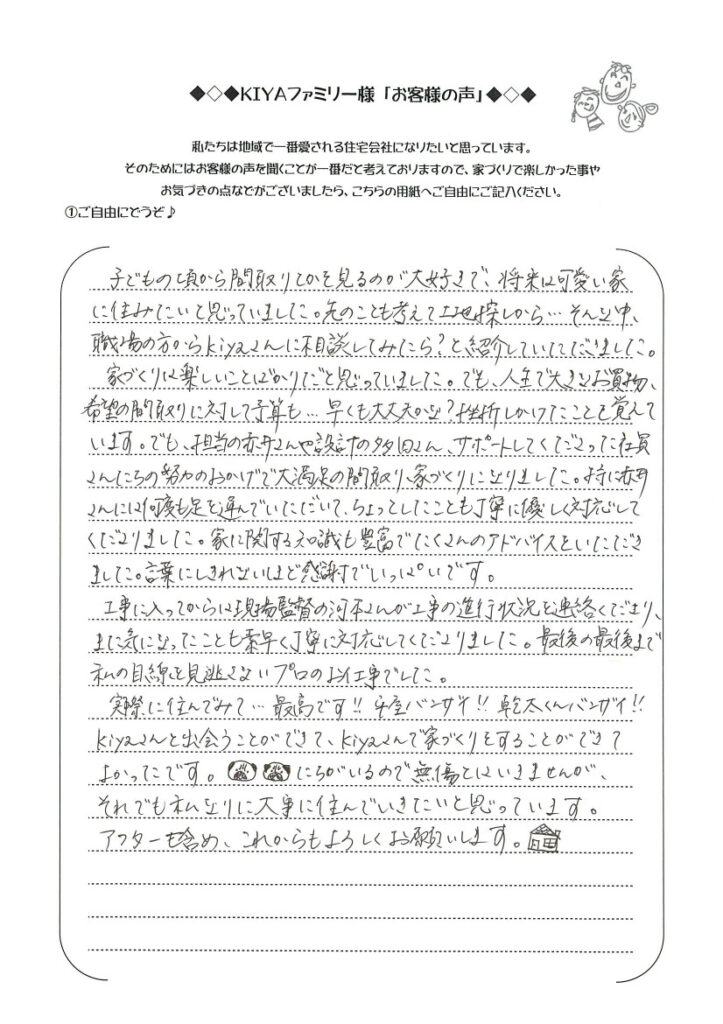 ◆◇◆KIYAファミリー様「お客様の声」◆◇◆
私たちは地域で一番愛される住宅会社になりたいと思っています。
そのためにはお客様の声を聞くことが一番だと考えておりますので、家づくりで楽しかった事や
お気づきの点などがございましたら、こちらの用紙へご自由にご記入ください。
①ご自由にどうぞ♪
子どもの頃から間取りとかを見るのが大好きで、将来は可愛い家
に住みたいと思っていました。先のことも考えて土地探しから…そんな中、
職場の方からkiyaさんに相談してみたら?と紹介していただきました。
家づくりは楽しいことばかりだと思っていました。でも、人生で大きなお買物、
希望の間取りに対して予算も…早くも大丈夫かな?挫折しかけたことを覚えて
います。でも、担当の赤井さんや設計の多田さん、サポートしてくださった社員
さんたちの努力のおかげで大満足の間取り、家づくりになりました。特に赤井
さんには何度も足を運んでいただいて、ちょっとしたことも丁寧に優しく対応して
くださりました。家に関する知識も豊富でたくさんのアドバイスをいただき
ました。言葉にしきれないほど感謝でいっぱいです。
工事に入ってからは現場監督の河本さんが工事の進行状況を連絡くださり、
また気になったことも素早く丁寧に対応してくださりました。最後の最後まで
私の目線を見逃さないプロのお仕事でした。
実際に住んでみて…最高です!!平屋バンザイ!!乾太くんバンザイ!!
kiyaさんと出会うことができて、kiyaさんで家づくりをすることができて
よかったです。たちがいるので無傷とはいきませんが、
それでも私なりに大事に住んでいきたいと思っています。
アフターも含め、これからもよろしくお願いします。